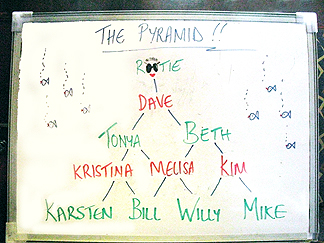 THE PYRAMID !!
ROOTIE
DAVE
TONYA BETH
KRISTINA MELISA KIM
KARSTEN BILL WILLY MIKE